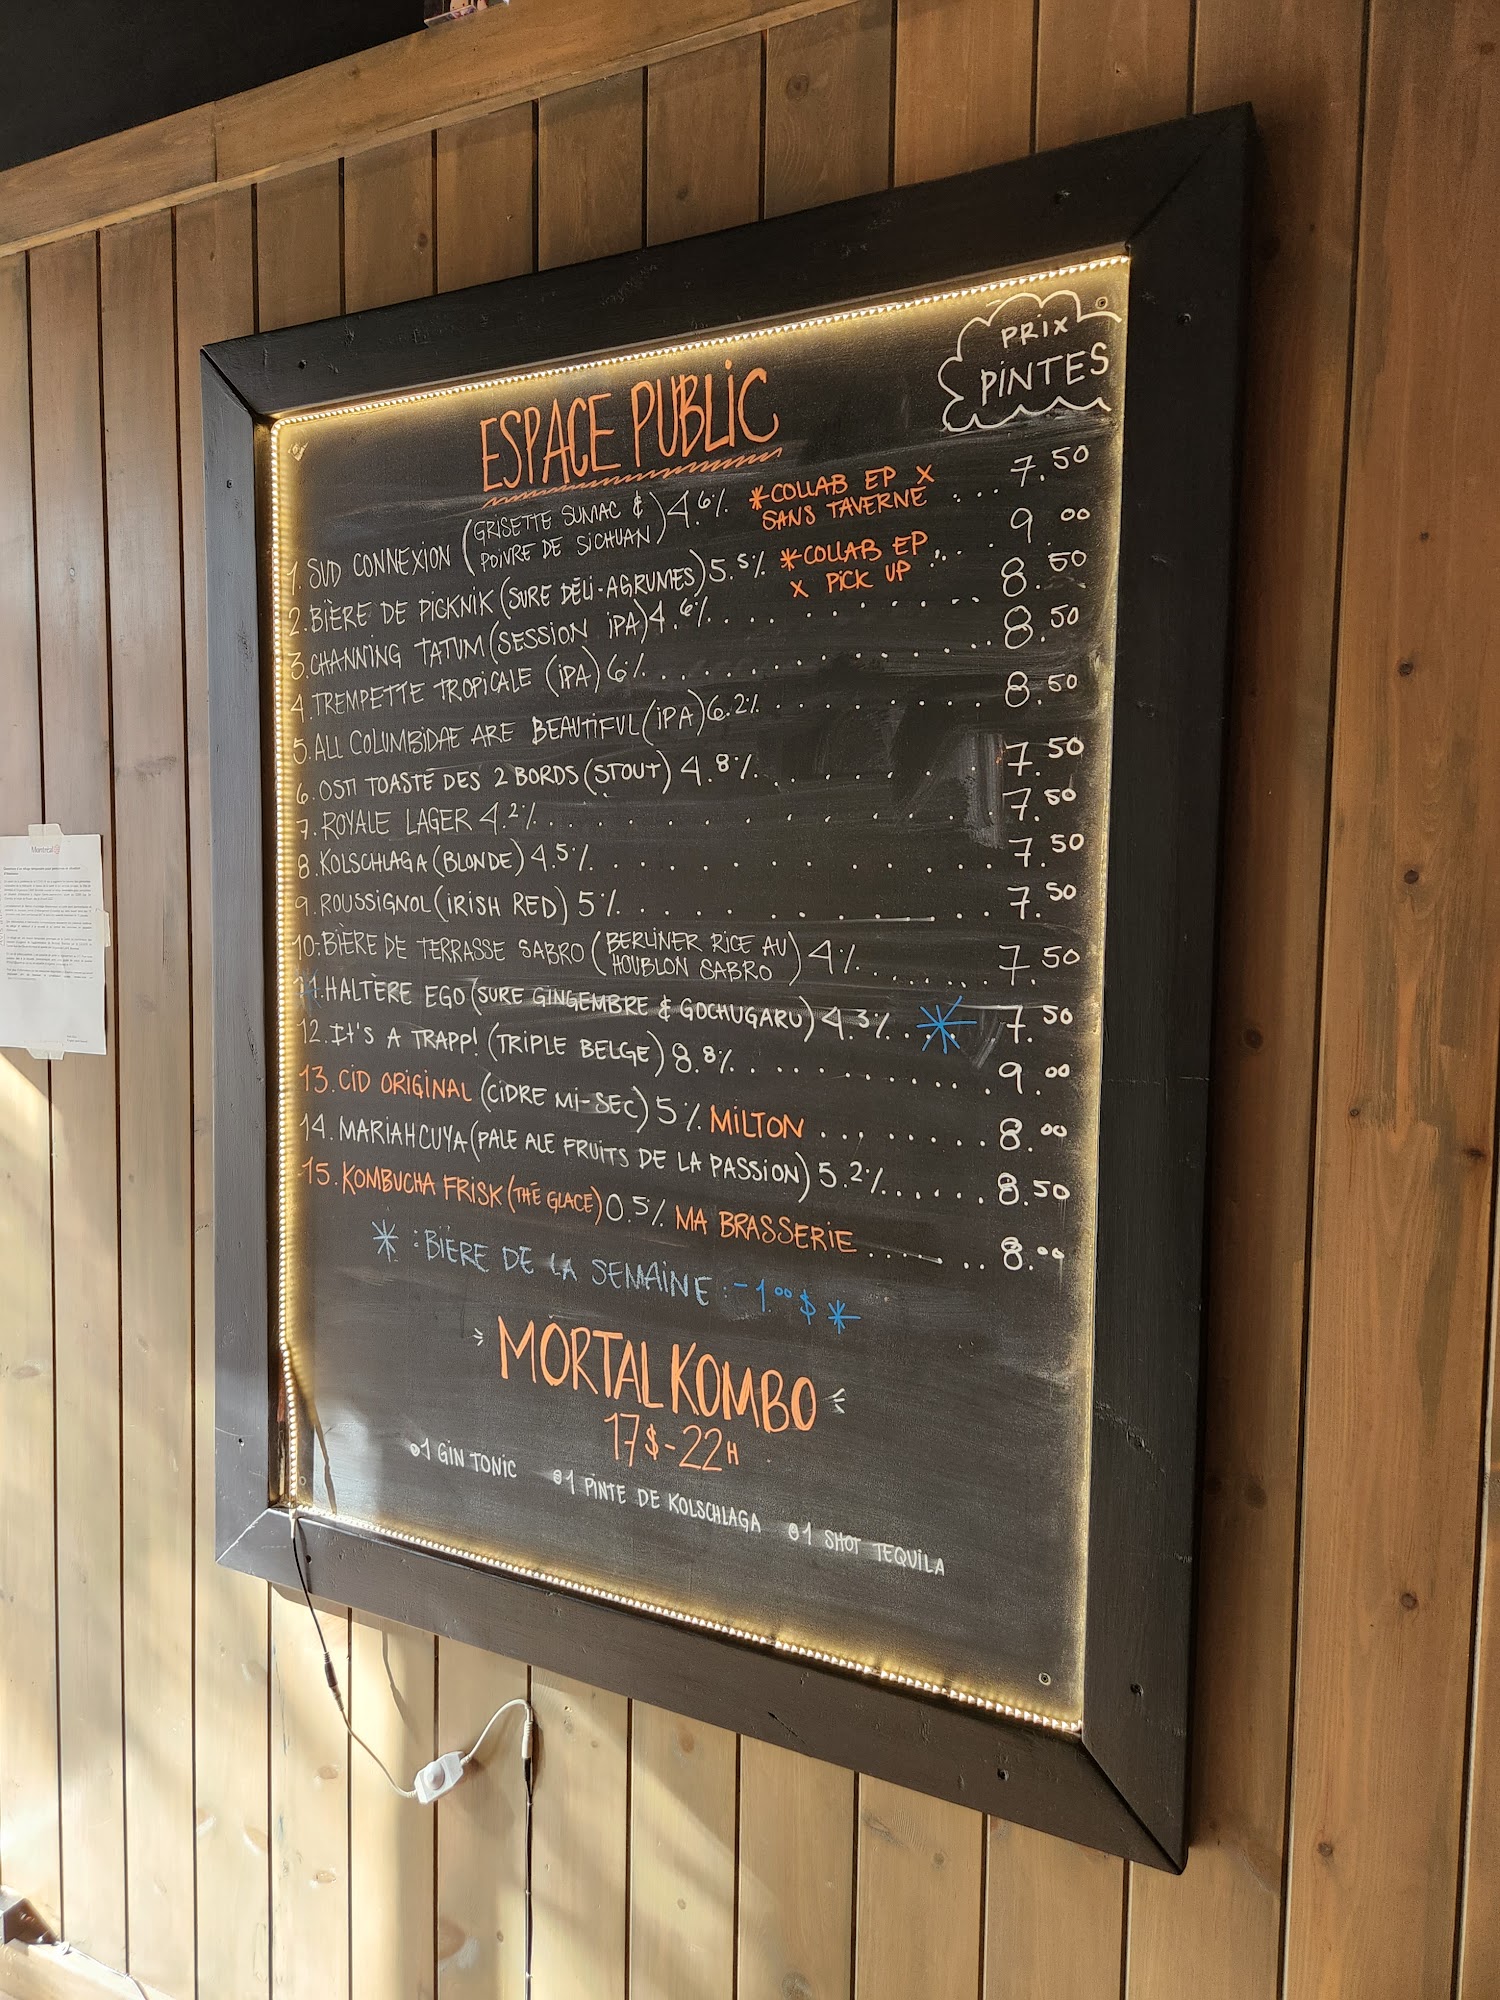 ESPACE PUBLIC
PRIX
PINTES
1. SUD CONNEXION (GRISETTE SUMAC & POIVRE DE SICHUAN) 4.6% *COLLAB EP X SANS TAVERNE ... 7.50
2. BIÈRE DE PICKNIK (SURE DÉLI-AGRUMES) 5.5% *COLLAB EP X PICK UP ... 9.00
3. CHANNING TATUM (SESSION IPA) 4.6% ......... 8.50
4. TREMPETTE TROPICALE (IPA) 6% ............ 8.50
5. ALL COLUMBIDAE ARE BEAUTIFUL (IPA) 6.2% ......... 8.50
6. OSTI TOASTÉ DES 2 BORDS (STOUT) 4.8% ....... 7.50
7. ROYALE LAGER 4.2% .......... 7.50
8. KOLSCHLAGA (BLONDE) 4.5% ........ 7.50
9. ROUSSIGNOL (IRISH RED) 5% ........ 7.50
10. BIÈRE DE TERRASSE SABRO (BERLINER RICE AU HOUBLON SABRO) 4% ...... 7.50
11. HALTÈRE EGO (SURE GINGEMBRE & GOCHUGARU) 4.3% ... * 7.50
12. It'S A TRAPP! (TRIPLE BELGE) 8.8% ........... 9.00
13. CID ORIGINAL (CIDRE MI-SEC) 5% MILTON ......... 8.00
14. MARIAHCUYA (PALE ALE FRUITS DE LA PASSION) 5.2% ...... 8.50
15. KOMBUCHA FRISK (THÉ GLACÉ) 0.5% MA BRASSERIE ....... 8.00
* : BIÈRE DE LA SEMAINE : -1.00$ *
MORTAL KOMBO
17$-22H
1 GIN TONIC 1 PINTE DE KOLSCHLAGA 1 SHOT TEQUILA
Montréal